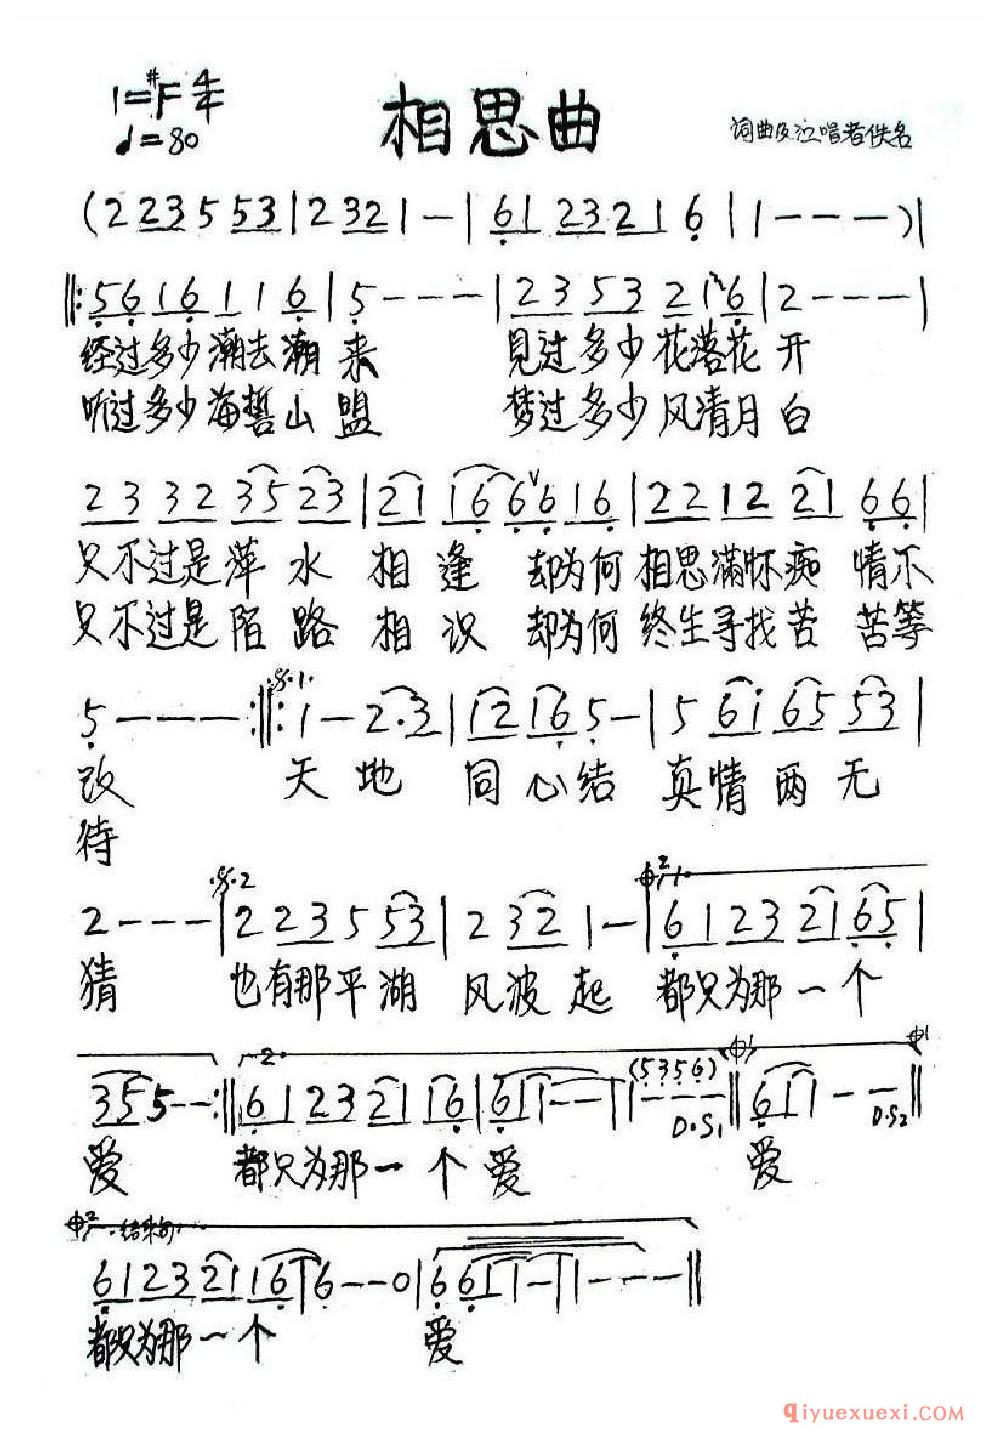 1=#F 4/4
♩=80
相思曲
词曲及泣唱者佚名
(2 23 5 53|2 32 1 -|61 23 21 6||1 - - -)|
‖:56 16 1 1 6|5 - - -|23 53 21 6|2 - - -|
经过多少潮去潮来 見过多少花落花开
听过多少海誓山盟 梦过多少风清月白
23 32 35 23|21 16 66 16|22 12 21 66|
只不过是萍水相逢 却为何相思满怀痴情不
只不过是陌路相识 却为何终生寻找苦苦等
5 - - - :‖: 1 - 2·3|12 16 5 -|5 6i 65 53|
改 天地同心结 真情两无
待
2 - - -|2 23 5 53|2 32 1 -|61 23 21 65|
猜 也有那平湖风波起 都只为那一个
35 5 - - :‖ 61 23 21 16|61 1 - -|1 - - - (5356) D.S1‖61 1 - - D.S2
爱 都只为那一个爱 爱
结束句
61 23 21 16 1 6 - - 0|6 61 1 -|1 - - -‖
都只为那一个 爱
qiyuexuexi.COM